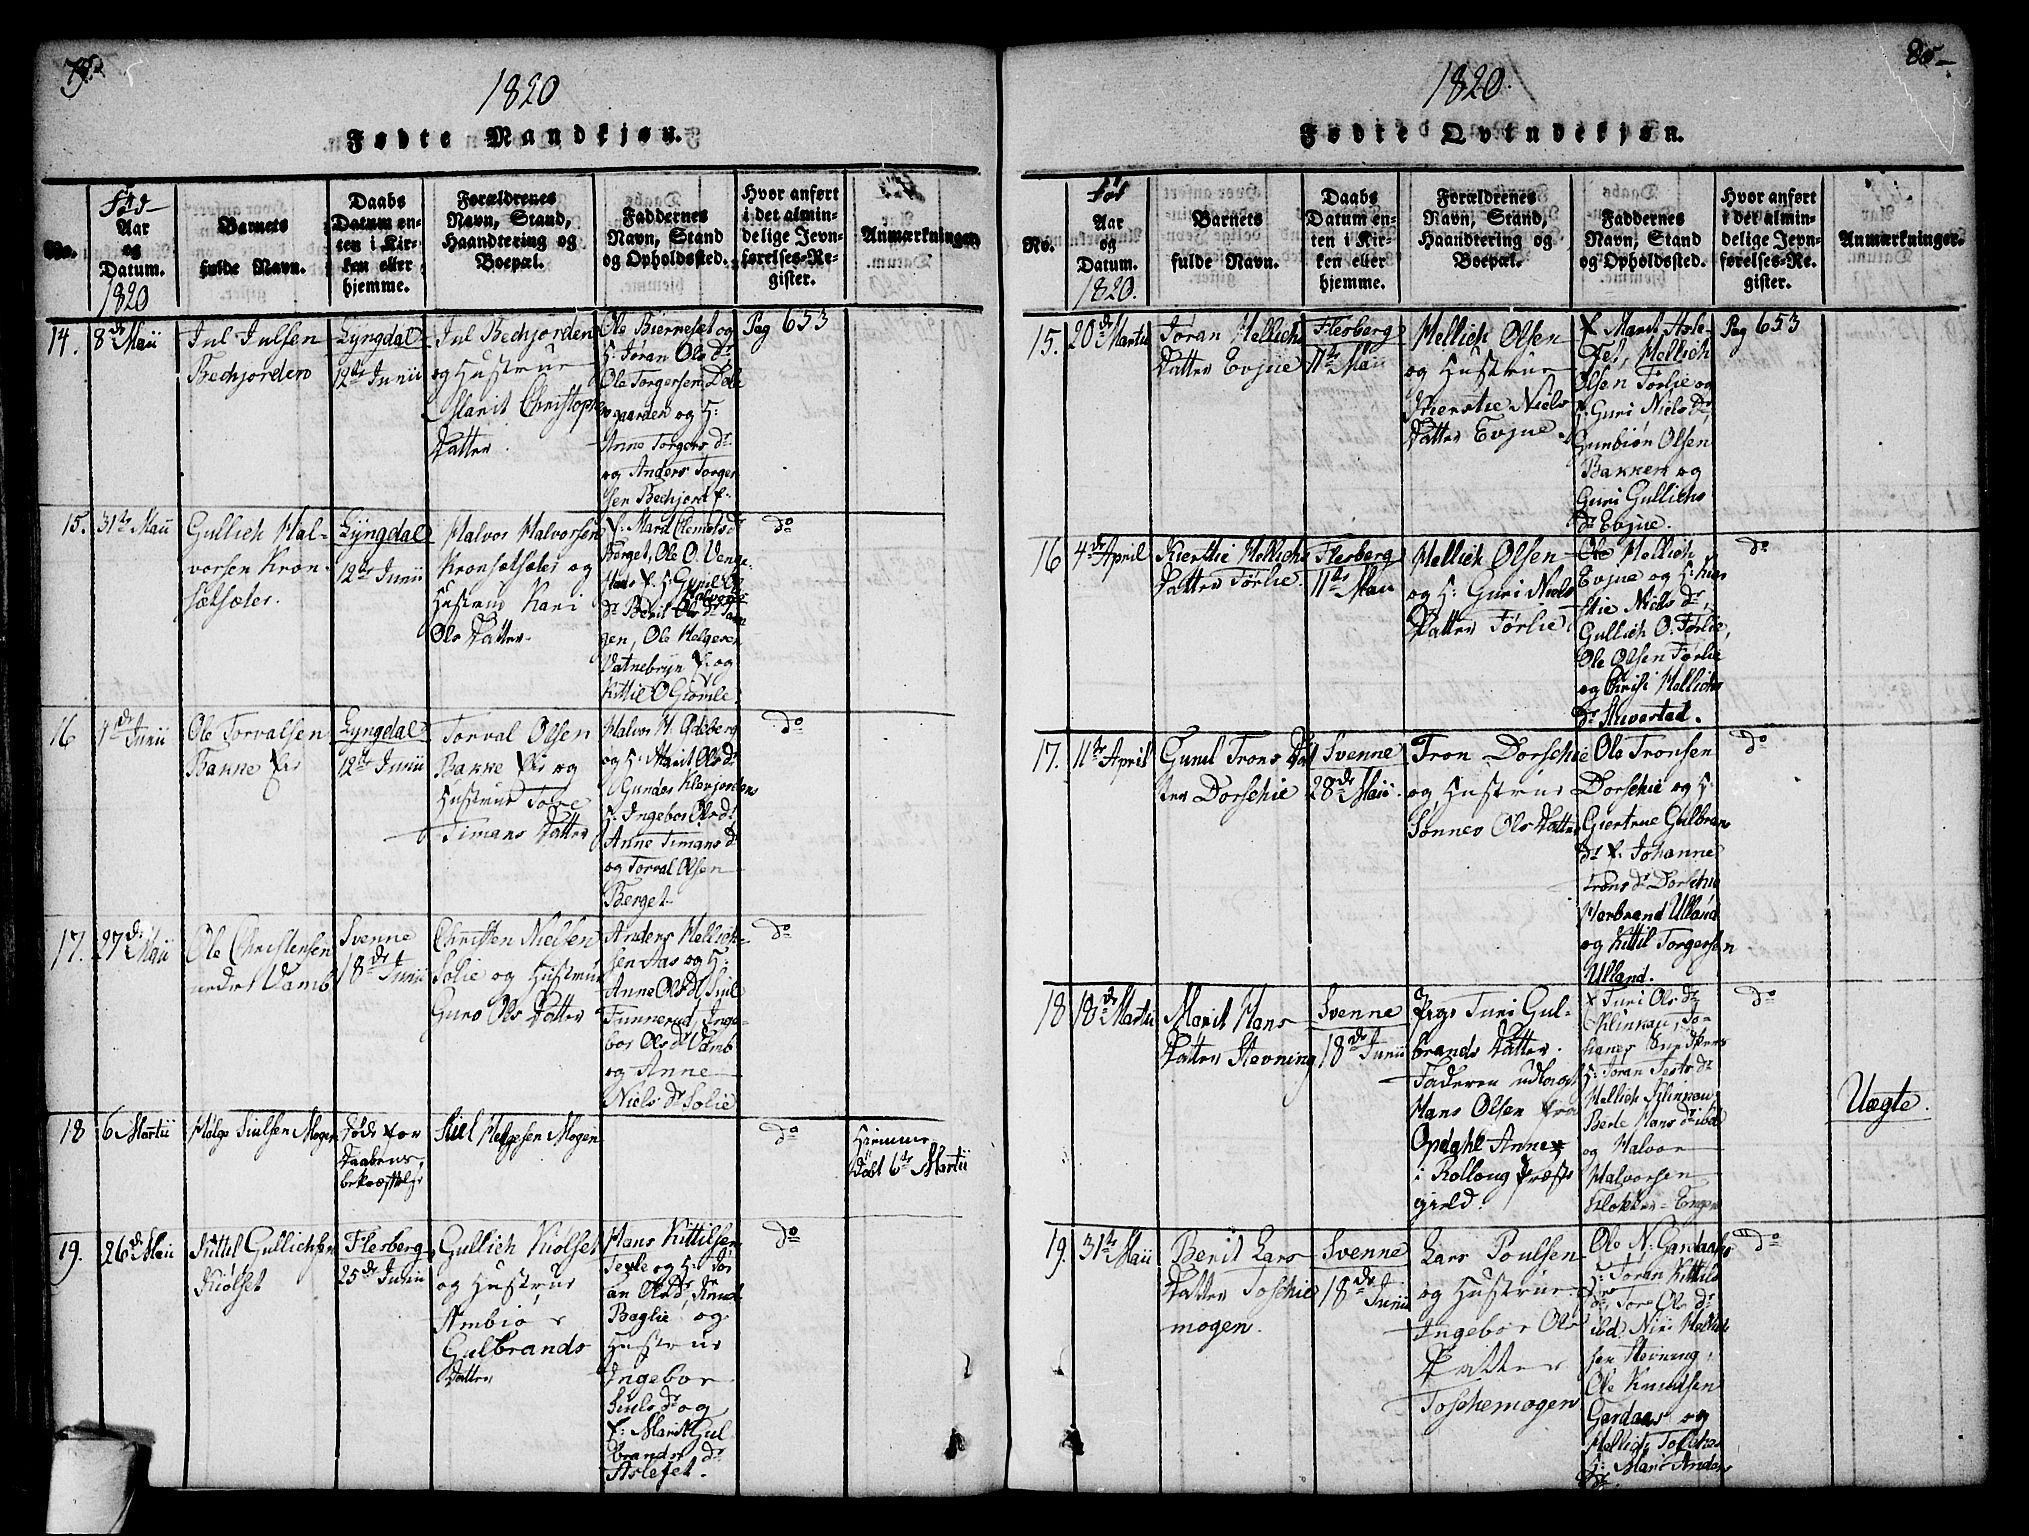 79.
1820
Fødte Mandkjøn.
No.
Fød-
Aar
og
Datum.
1820
Barnets
fulde Navn.
Daabs
Datum en-
ten i Kir-
ken eller
hjemme.
Forældrenes
Navn, Stand,
Haandtering og
Boepæl.
Faddernes
Navn, Stand
og Opholdssted.
Hvor anført
i det almin-
delige Jevn-
førelses-Re-
gister.
Anmærkninger.
14.
8de Maii
Jul Julsen
Bechjorden
Lyngdal
12te Junii
Jul Bechjorden
og Hustrue
Marit Christophe
Datter
Ole Bierneset og
H: Jøran Ols Dr
Ole Torgersen
gaarden og H:
Anne Torgers Dr
og Anders Torger
sen Bechjord
Pag 653
15.
31te Maii
Gullich Hal-
vorsen Kron-
sætsæter.
Lyngdal
12te Junii
Halvor Halvorsen
Kronsætsæter og
Hustrue Kari
Ols Datter.
Berget, Ole O.
Dr Berit
gen, Ole Helgesen
Vatnebryn og
Kittil O Giømle
do
16
Ole Torvalsen
Bakke
Lyngdal
12te Junii
Torval Olsen
Bakke og
Hustrue Tore
Timans Datter
Halvor H.
og H: Marit Ols Dr
Gunder Klevjorden
H. Ingebor Ols Dr
Anne Timans Dr
og Torval Olsen
Berget
do
17.
27de Maii
Ole Christensen
nedre Vamb
Svenne
18de Junii
Christen Nielsen
Solie og Hustrue
Guro Ols Datter
Anders Hellich-
sen Aas og H:
Anne Ols Dr
Funnerud, Inge-
bor Ols Dr Vamb
og Anne
Niels Dr Solie
do
18
6 Martii
Helge Siulsen Mogen
Død før
Daabens
bekræftelse
Siul Helgesen Mogen
do
Hiemme
Død 6te Martii
19.
26de Maii
Kittil Gullichsen
Kiølset
Flesberg
25de Junii
Gullich Kiølset
og Hustrue
Ambiør
Gulbrands
Datter
Hans Kittilsen
og H: Jør
an Ols Dr, Knud
Baglie og
Hustrue
Ingebor
Siuls Dr og
Marit Gul
brands Dr
Aslefet.
do
80
1820.
Fødte Qvindekjøn.
No.
Fød
Aar
og
Datum.
1820.
Barnets
fulde Navn.
Daabs
Datum en-
ten i Kir-
ken eller
hjemme.
Forældrenes
Navn, Stand,
Haandtering og
Boepæl.
Faddernes
Navn, Stand
og Opholdssted.
Hvor anført
i det almin-
delige Jevn-
førelses-Re-
gister.
Anmærkninger.
15.
20de Martii
Jøran Hellichs
Datter Evjue
Flesberg
11te Maii
Hellich Olsen
og Hustrue
Kierstie Niels
Datter Evjue
Marit Asle-
Hellich
Olsen Førlie og
H: Guri Niels Dr,
Gunbiøn Olsen
Bakken og
Guri Gullichs
Dr Evjue.
Pag 653
16
4de April
Kierstie Hellichs
Datter Førlie.
Flesberg
11te Maii
Hellich Olsen
og H: Guri Niels
Datter Førlie
Hellich
Evjue og H: Kier
stie Niels Dr,
Gullich O. Førlie,
Ole Olsen Førlie
og Hellichs
Dr
do
17.
11te April
Gunil Trons Dat
ter Dorschie
Svenne
28de Maii
Tron Dorschie
og Hustrue
Sønnev Ols Datter
Ole Tronsen
Dorschie og H:
Giertrue Gulbrans
Dr Johanne
Trons Dr Dorschie
Herbrand Ulland
og Kittil Torgersen
Ulland.
do
18
18de Martii
Marit Hans
Datter Stevning
Svenne
18de Junii
Pige Turi Gul-
brands Datter.
Faderen udlagt
Hans Olsen fra
Opdahl Annex
i Rolloug Præste
gield.
Turi Ols Dr
Jo-
hanes
H: Jøran
Hellich
Berte Hans Dr ibd
og Halvor
Halvorsen
do
Uægte.
19.
31te Maii
Berit Lars
Datter Toschie
mogen.
Svenne
18de Junii
Lars Poulsen
og Hustrue
Ingebor Ols
Datter
Toschemogen
Ole N: Gardaas
H: Jøran Kittils
Dr, Tore Ols Dr
ibd, Hellich
sen Stevning,
Ole Knudsen
Gardaas og
Hellich
H: Mari Anders
Dr
do